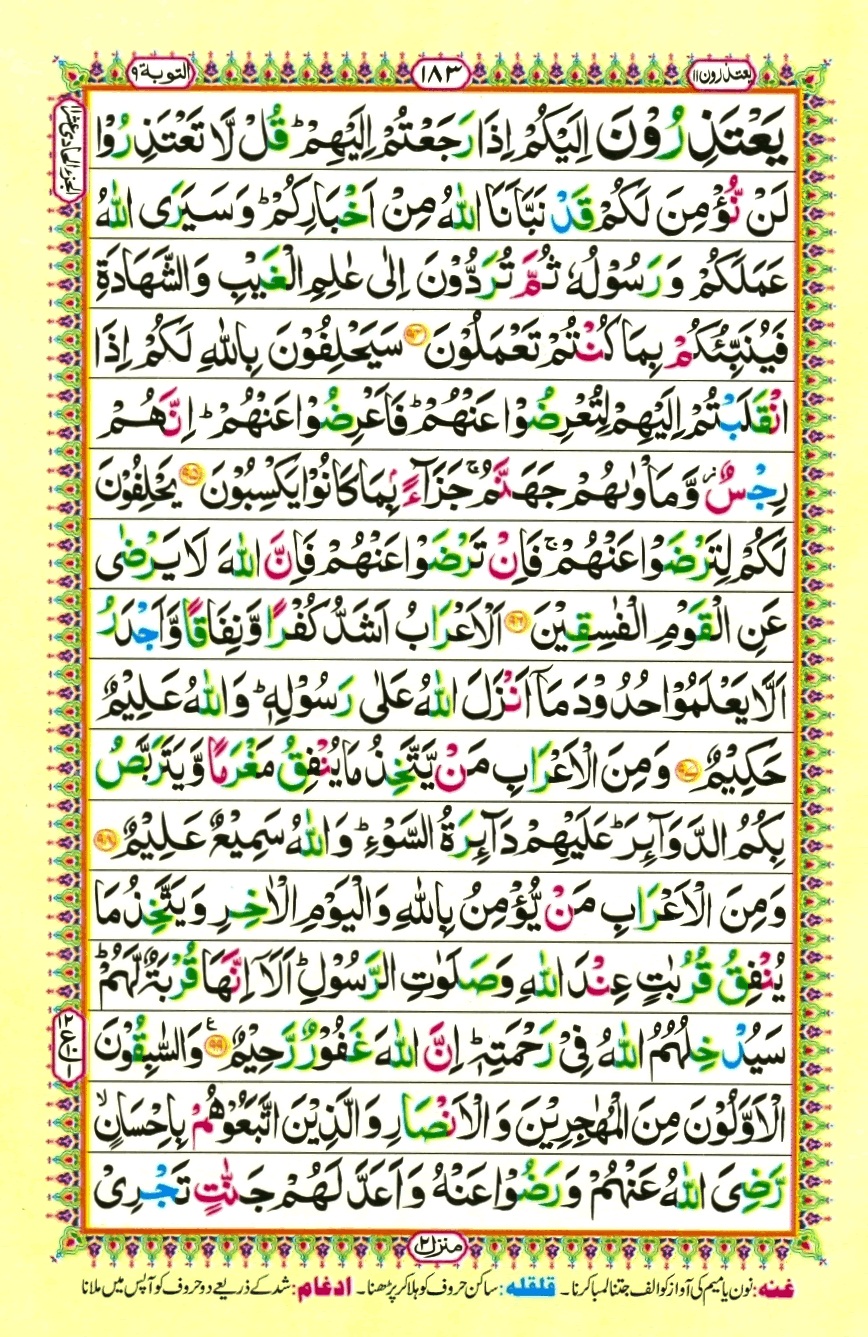 یعتذرون ۱۱
۱۸۳
التوبة ۹
الجزء الحادي عشر
يَعْتَذِرُوْنَ اِلَيْكُمْ اِذَا رَجَعْتُمْ اِلَيْهِمْ ؕ قُلْ لَّا تَعْتَذِرُوْا
لَنْ نُّؤْمِنَ لَكُمْ قَدْ نَبَّاَنَا اللّٰهُ مِنْ اَخْبَارِكُمْ ؕ وَسَيَرَى اللّٰهُ
عَمَلَكُمْ وَرَسُوْلُهٗ ثُمَّ تُرَدُّوْنَ اِلٰى عٰلِمِ الْغَيْبِ وَالشَّهَادَةِ
فَيُنَبِّئُكُمْ بِمَا كُنْتُمْ تَعْمَلُوْنَ ۹۴ سَيَحْلِفُوْنَ بِاللّٰهِ لَكُمْ اِذَا
انْقَلَبْتُمْ اِلَيْهِمْ لِتُعْرِضُوْا عَنْهُمْ ؕ فَاَعْرِضُوْا عَنْهُمْ ؕ اِنَّهُمْ
رِجْسٌ ؗ وَّمَاْوٰىهُمْ جَهَنَّمُ ۚ جَزَآءًۢ بِمَا كَانُوْا يَكْسِبُوْنَ ۹۵ يَحْلِفُوْنَ
لَكُمْ لِتَرْضَوْا عَنْهُمْ ۚ فَاِنْ تَرْضَوْا عَنْهُمْ فَاِنَّ اللّٰهَ لَا يَرْضٰى
عَنِ الْقَوْمِ الْفٰسِقِيْنَ ۹۶ اَلْاَعْرَابُ اَشَدُّ كُفْرًا وَّنِفَاقًا وَّاَجْدَرُ
اَلَّا يَعْلَمُوْا حُدُوْدَ مَاۤ اَنْزَلَ اللّٰهُ عَلٰى رَسُوْلِهٖ ؕ وَاللّٰهُ عَلِيْمٌ
حَكِيْمٌ ۹۷ وَمِنَ الْاَعْرَابِ مَنْ يَّتَّخِذُ مَا يُنْفِقُ مَغْرَمًا وَّيَتَرَبَّصُ
بِكُمُ الدَّوَآئِرَ ؕ عَلَيْهِمْ دَآئِرَةُ السَّوْءِ ؕ وَاللّٰهُ سَمِيْعٌ عَلِيْمٌ ۹۸
وَمِنَ الْاَعْرَابِ مَنْ يُّؤْمِنُ بِاللّٰهِ وَالْيَوْمِ الْاٰخِرِ وَيَتَّخِذُ مَا
يُنْفِقُ قُرُبٰتٍ عِنْدَ اللّٰهِ وَصَلَوٰتِ الرَّسُوْلِ ؕ اَلَاۤ اِنَّهَا قُرْبَةٌ لَّهُمْ ؕ
سَيُدْخِلُهُمُ اللّٰهُ فِيْ رَحْمَتِهٖ ؕ اِنَّ اللّٰهَ غَفُوْرٌ رَّحِيْمٌ ۹۹ ع وَالسّٰبِقُوْنَ
الْاَوَّلُوْنَ مِنَ الْمُهٰجِرِيْنَ وَالْاَنْصَارِ وَالَّذِيْنَ اتَّبَعُوْهُمْ بِاِحْسَانٍ ۙ
رَّضِيَ اللّٰهُ عَنْهُمْ وَرَضُوْا عَنْهُ وَاَعَدَّ لَهُمْ جَنّٰتٍ تَجْرِيْ
منزل ۲
غنه: نون یا میم کی آواز کو الف جتنا لمبا کرنا ۔ قلقله: ساکن حروف کو ہلا کر پڑھنا ۔ ادغام: شد کے ذریعے دو حروف کو آپس میں ملانا